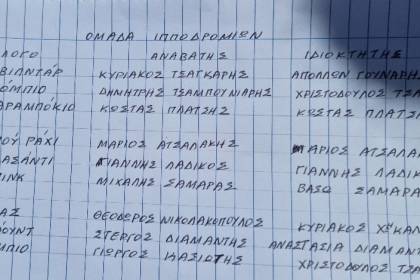 ΟΜΑΔΑ ΙΠΠΟΔΡΟΜΙΩΝ
ΛΟΓΟ ΑΝΑΒΑΤΗΣ ΙΔΙΟΚΤΗΤΗΣ
ΒΙΛΝΤΑΡ ΚΥΡΙΑΚΟΣ ΤΣΑΓΚΑΡΗΣ ΑΠΟΛΛΩΝ ΓΟΥΝΑΡΗ
ΟΜΠΙΟ ΔΗΜΗΤΡΗΣ ΤΣΑΜΠΟΥΝΙΑΡΗΣ ΧΡΙΣΤΟΔΟΥΛΟΣ ΤΣΑ
ΑΡΑΜΠΟΚΙΟ ΚΩΣΤΑΣ ΠΛΑΤΣΗΣ ΚΩΣΤΑΣ ΠΛΑΤΣΙ
ΟΥ ΡΑΧΙ ΜΑΡΙΟΣ ΑΤΣΑΛΑΚΗΣ ΜΑΡΙΟΣ ΑΤΣΑΛΑ
ΑΣΑΝΤΙ ΓΙΑΝΝΗΣ ΛΑΔΙΚΟΣ ΓΙΑΝΝΗΣ ΛΑΔΙΚ
ΙΝΚ ΜΙΧΑΛΗΣ ΣΑΜΑΡΑΣ ΒΑΣΩ ΣΑΜΑΡΑ
ΑΣ ΘΕΟΔΩΡΟΣ ΝΙΚΟΛΑΚΟΠΟΥΛΟΣ ΚΥΡΙΑΚΟΣ
ΟΥΝΤ ΣΤΕΡΓΟΣ ΔΙΑΜΑΝΤΗΣ ΑΝΑΣΤΑΣΙΑ ΔΙΑΜΑΝ
ΜΠΙΟ ΓΙΩΡΓΟΣ ΚΑΣΙΩΤΗΣ ΧΡΙΣΤΟΔΟΥΛΟΣ ΤΣΑ